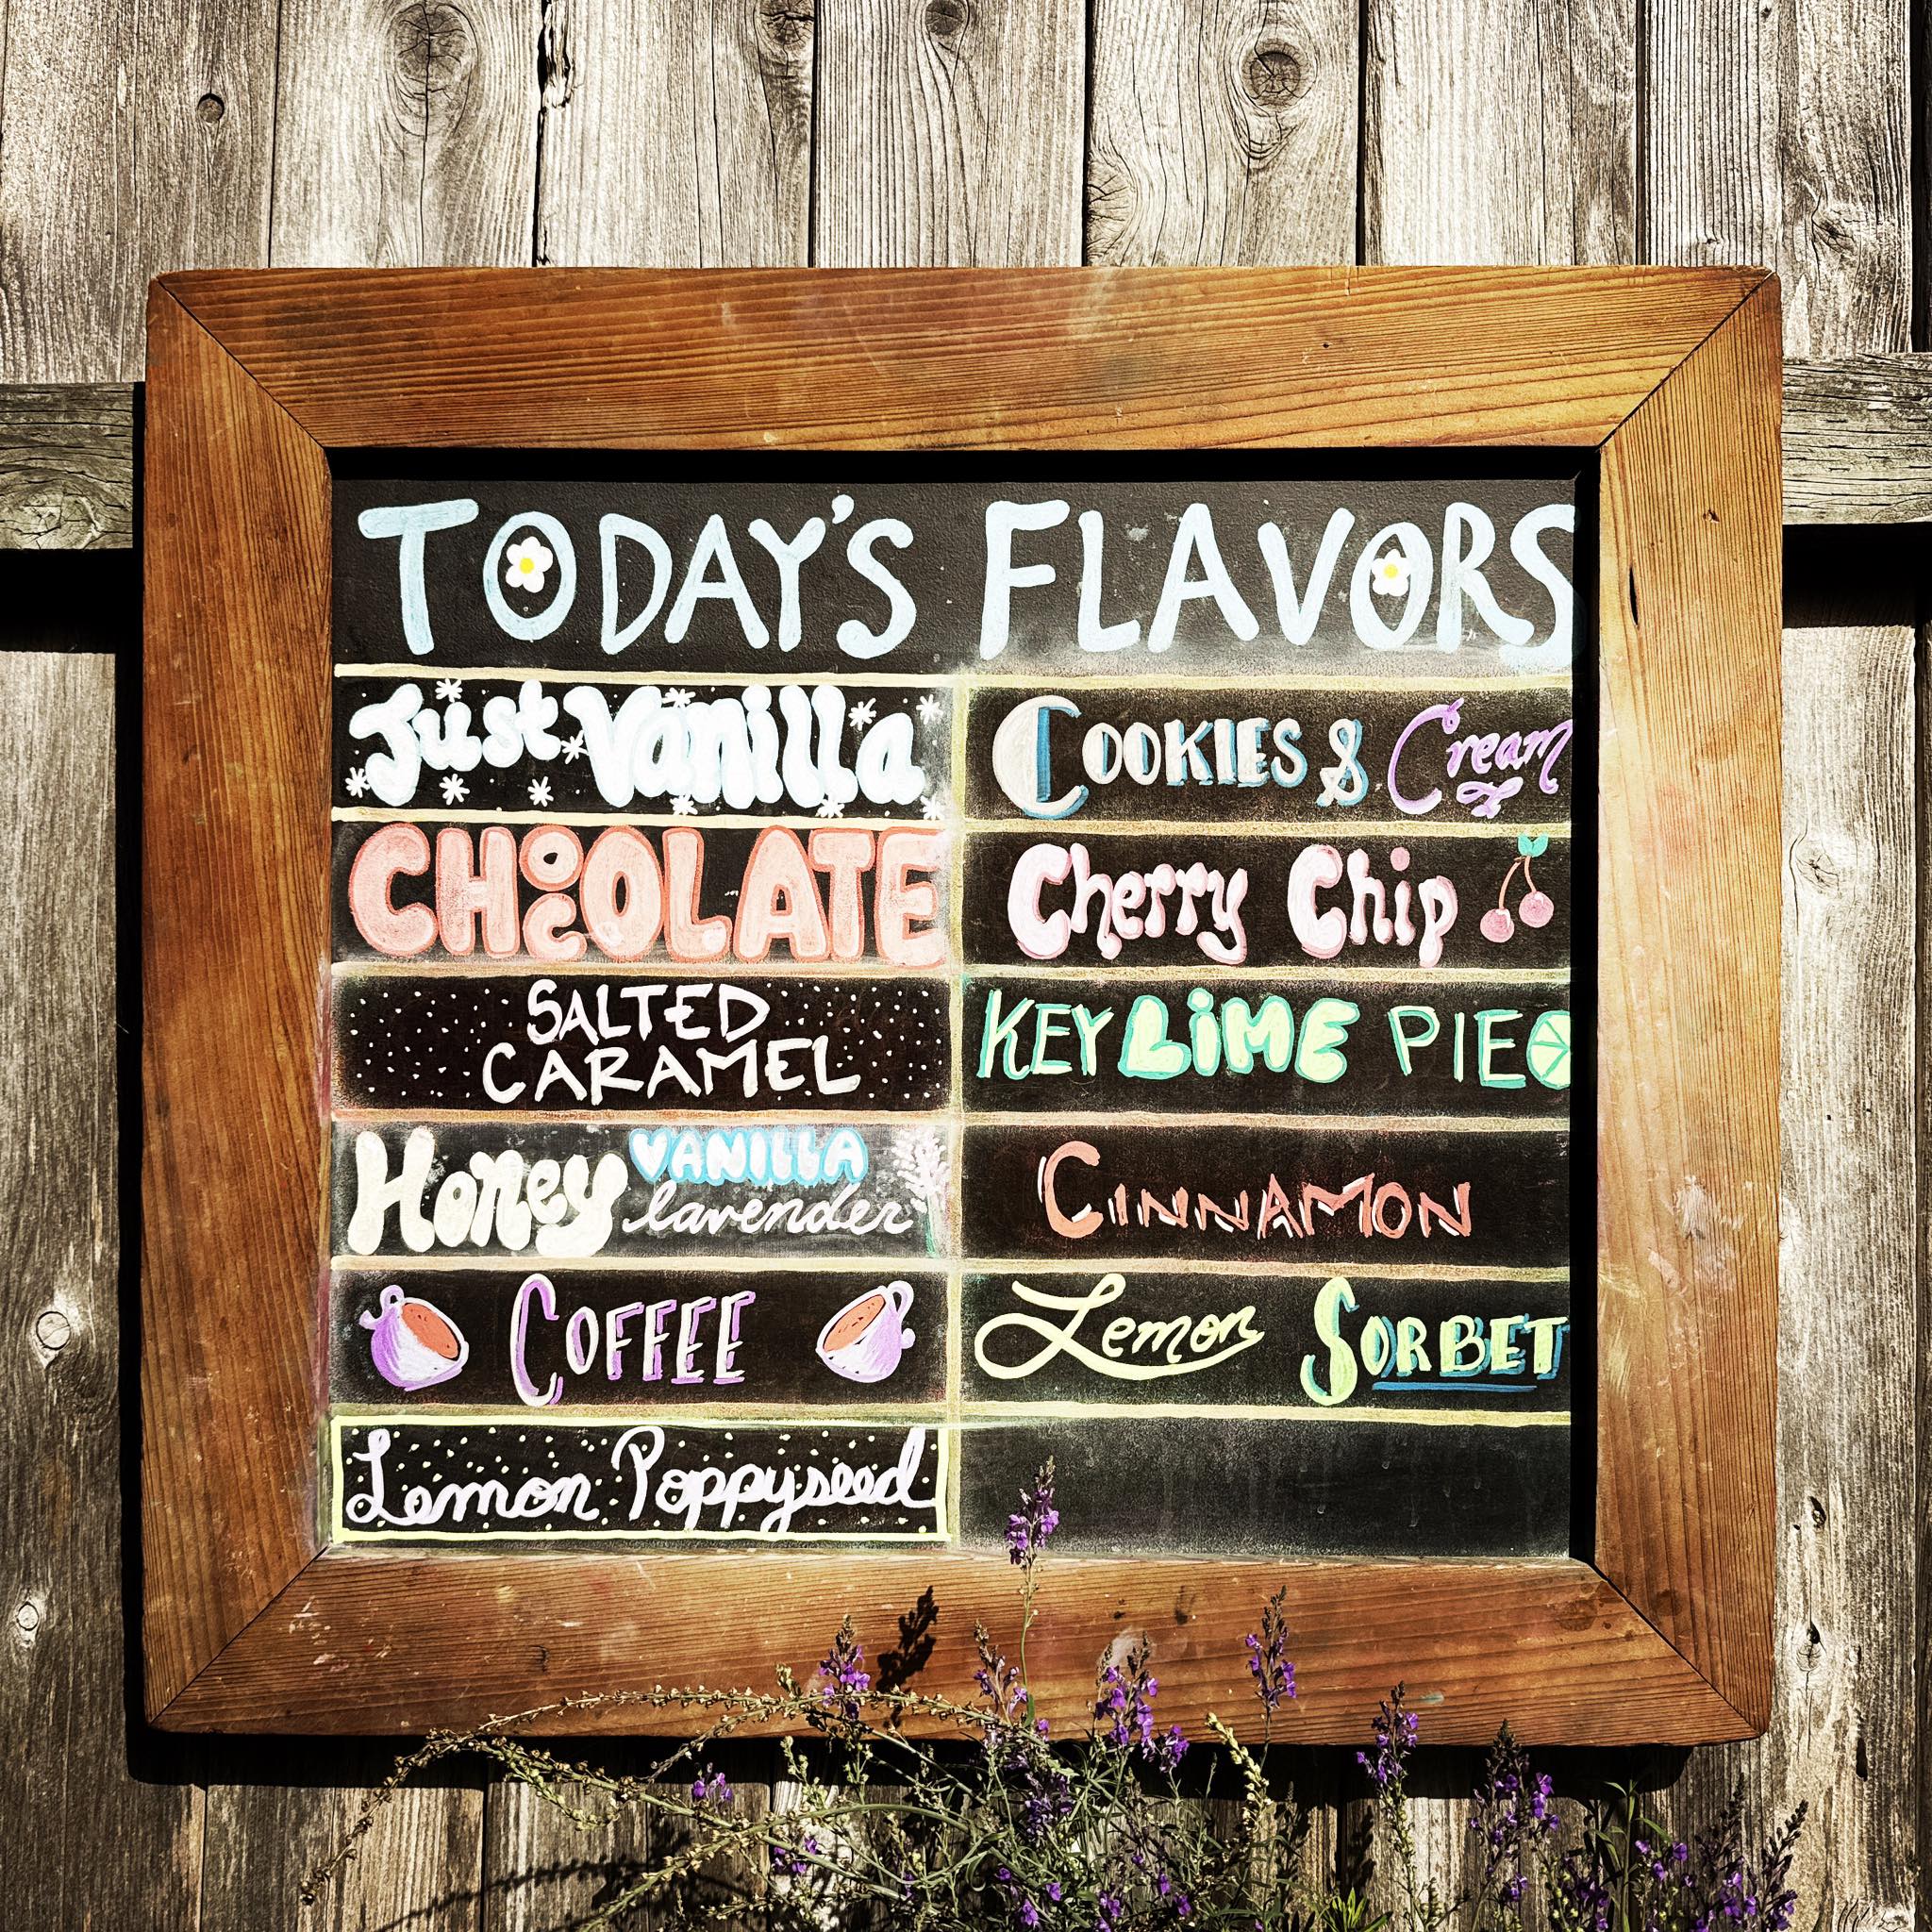 TODAY'S FLAVORS
Just Vanilla
CHOCOLATE
SALTED
CARAMEL
Honey VANILLA
lavender
COFFEE
Lemon Poppyseed
COOKIES & Cream
Cherry Chip
KEY LiME PIE
CINNAMON
Lemon SORBET